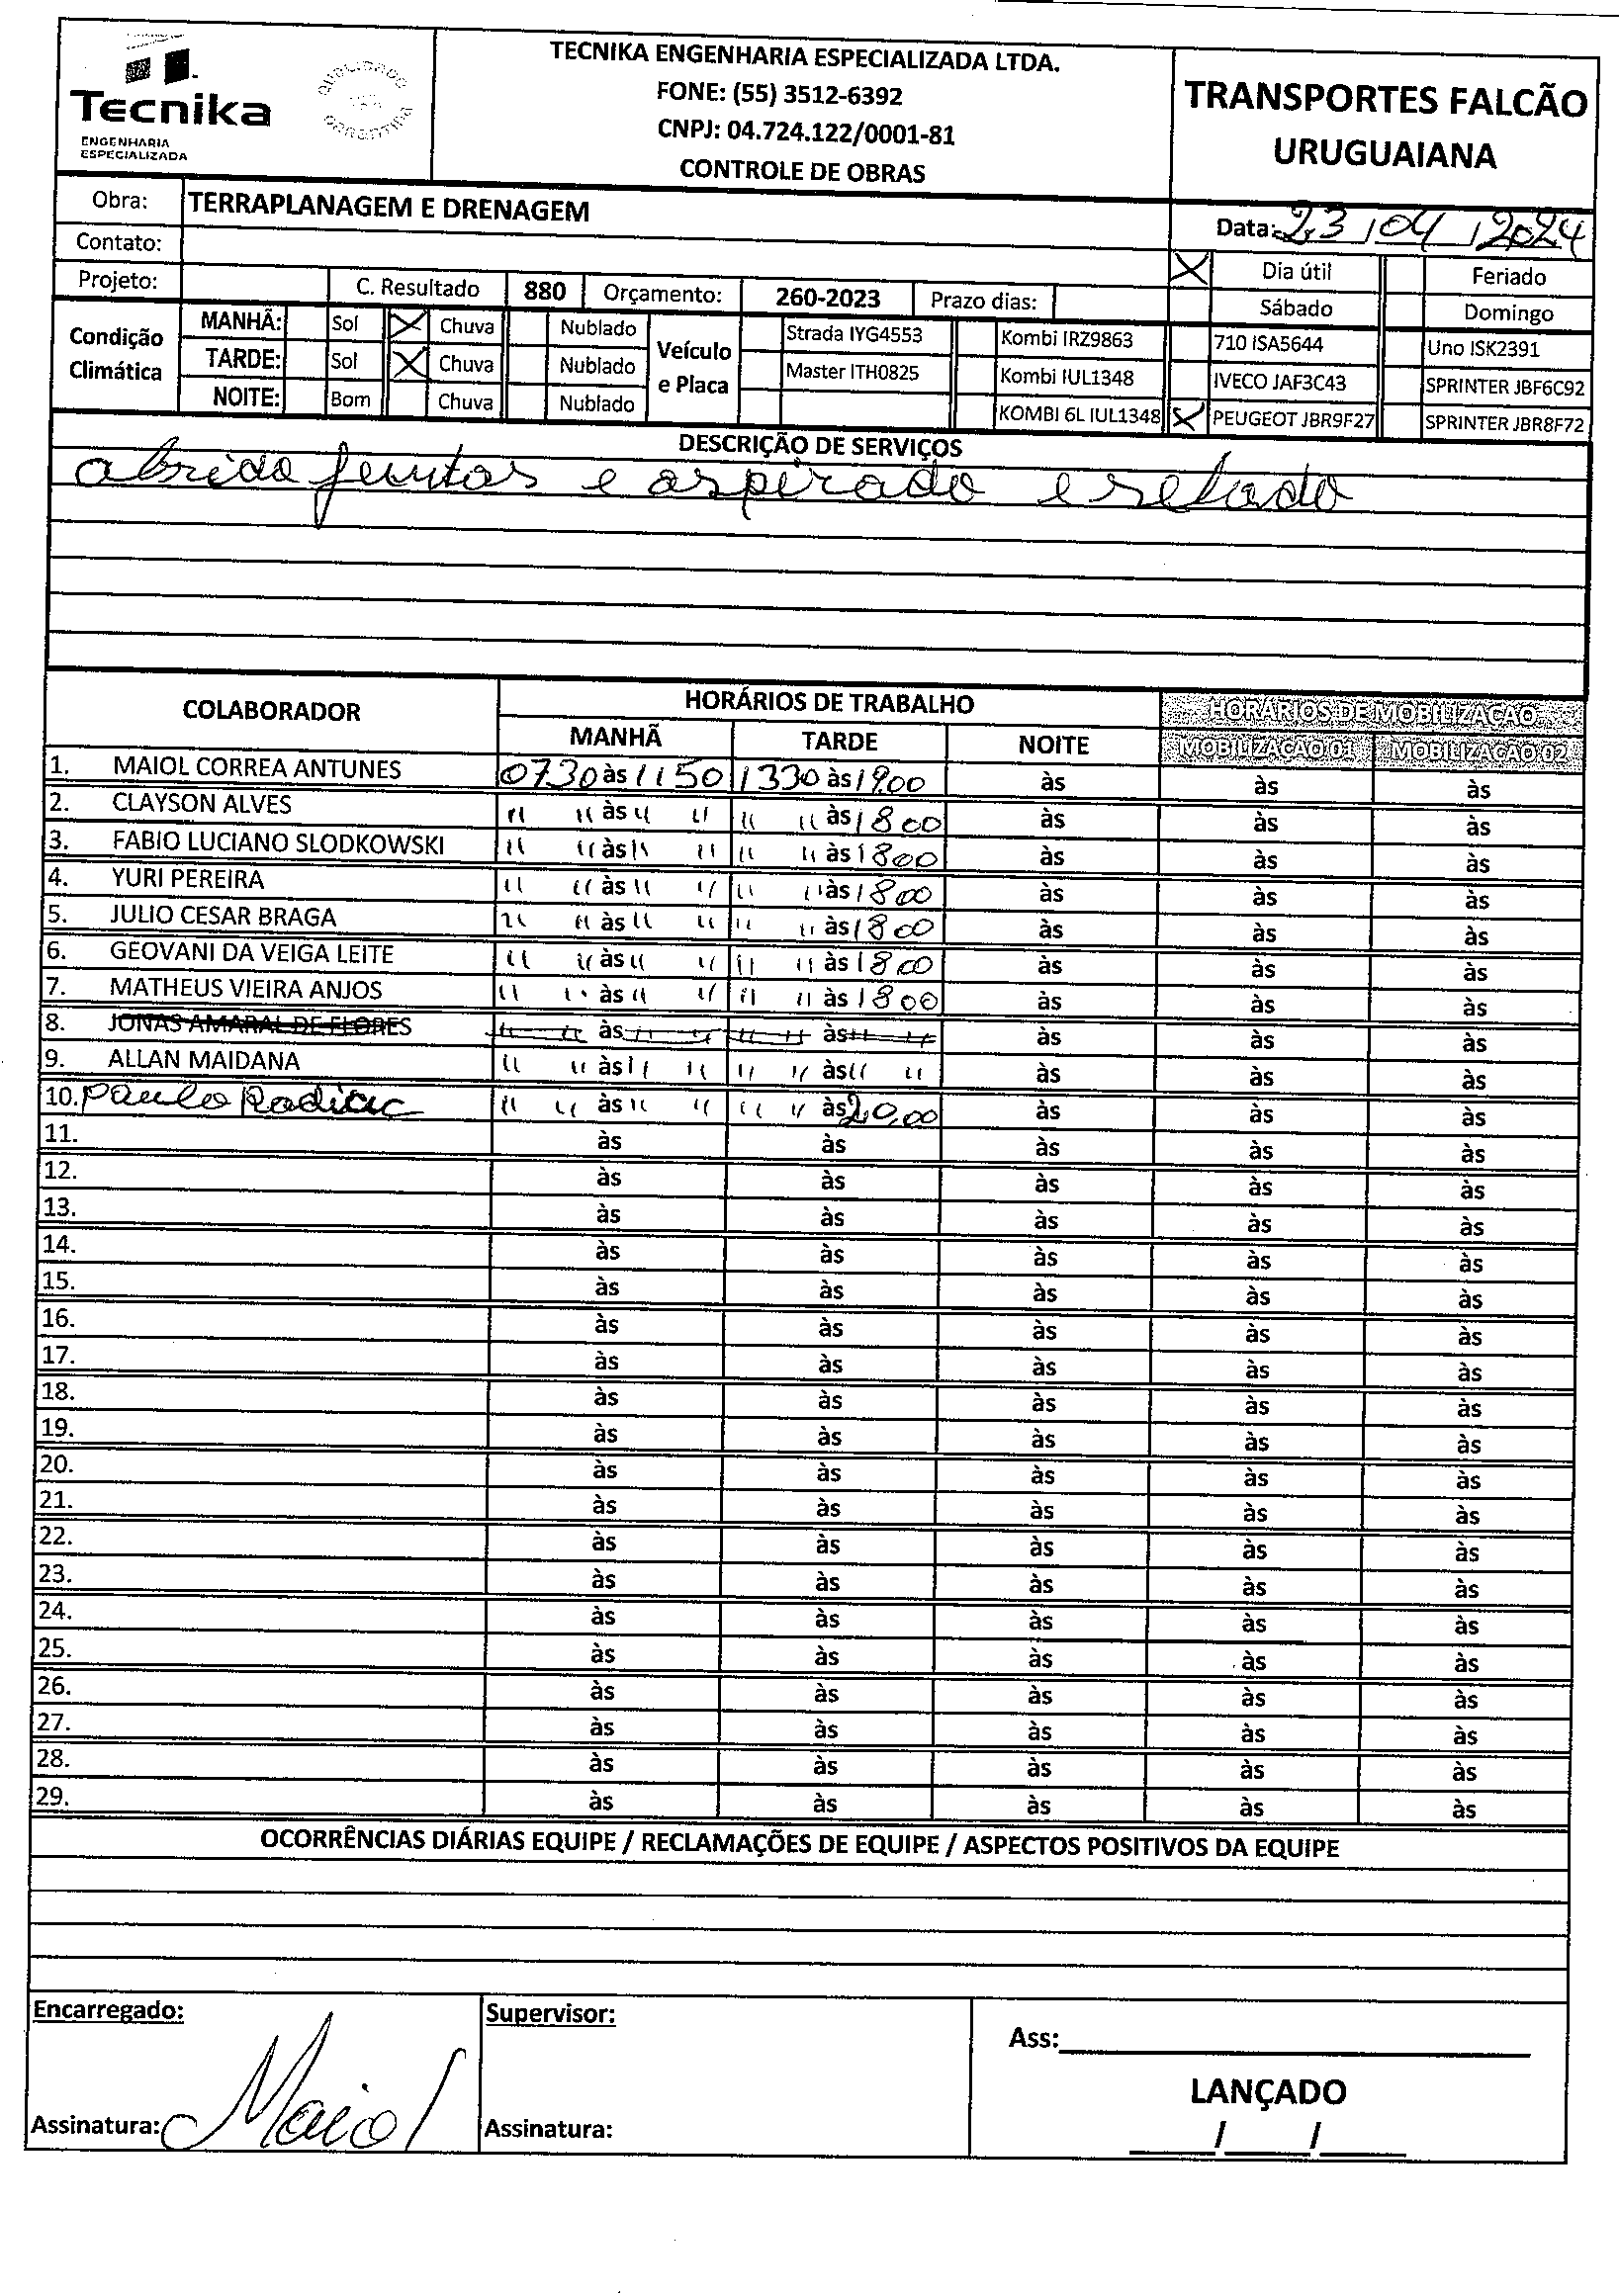 Tecnika
ENGENHARIA
ESPECIALIZADA
QUALIDADE
GARANTIDA
TECNIKA ENGENHARIA ESPECIALIZADA LTDA.
FONE: (55) 3512-6392
CNPJ: 04.724.122/0001-81
CONTROLE DE OBRAS
TRANSPORTES FALCÃO
URUGUAIANA
Obra: TERRAPLANAGEM E DRENAGEM
Data: 23/04/2024
Contato:
X Dia útil Feriado
Projeto: C. Resultado 880 Orçamento: 260-2023 Prazo dias:
Sábado Domingo
Condição Climática
MANHÃ: Sol X Chuva Nublado
TARDE: Sol X Chuva Nublado
NOITE: Bom Chuva Nublado
Veículo e Placa
Strada IYG4553 Kombi IRZ9863 710 ISA5644 Uno ISK2391
Master ITH0825 Kombi IUL1348 IVECO JAF3C43 SPRINTER JBF6C92
KOMBI 6L IUL1348 X PEUGEOT JBR9F27 SPRINTER JBR8F72
DESCRIÇÃO DE SERVIÇOS
abrido juntas e aspirado e selado
COLABORADOR HORÁRIOS DE TRABALHO HORÁRIOS DE MOBILIZAÇÃO
MANHÃ TARDE NOITE MOBILIZAÇÃO 01 MOBILIZAÇÃO 02
1. MAIOL CORREA ANTUNES 0730 às 1150 1330 às 19:00 às às às
2. CLAYSON ALVES " " às " " " " às 1800 às às às
3. FABIO LUCIANO SLODKOWSKI " " às " " " " às 1800 às às às
4. YURI PEREIRA " " às " " " " às 1800 às às às
5. JULIO CESAR BRAGA " " às " " " " às 1800 às às às
6. GEOVANI DA VEIGA LEITE " " às " " " " às 1800 às às às
7. MATHEUS VIEIRA ANJOS " " às " " " " às 1800 às às às
8. JONAS AMARAL DE FLORES " " às " " " " às " " às às às
9. ALLAN MAIDANA " " às " " " " às " " às às às
10. Paulo " " às " " " " às 20:00 às às às
11. às às às às às
12. às às às às às
13. às às às às às
14. às às às às às
15. às às às às às
16. às às às às às
17. às às às às às
18. às às às às às
19. às às às às às
20. às às às às às
21. às às às às às
22. às às às às às
23. às às às às às
24. às às às às às
25. às às às às às
26. às às às às às
27. às às às às às
28. às às às às às
29. às às às às às
OCORRÊNCIAS DIÁRIAS EQUIPE / RECLAMAÇÕES DE EQUIPE / ASPECTOS POSITIVOS DA EQUIPE
Encarregado: Supervisor:
Ass:
LANÇADO
Assinatura: Maiol Assinatura:
/ /